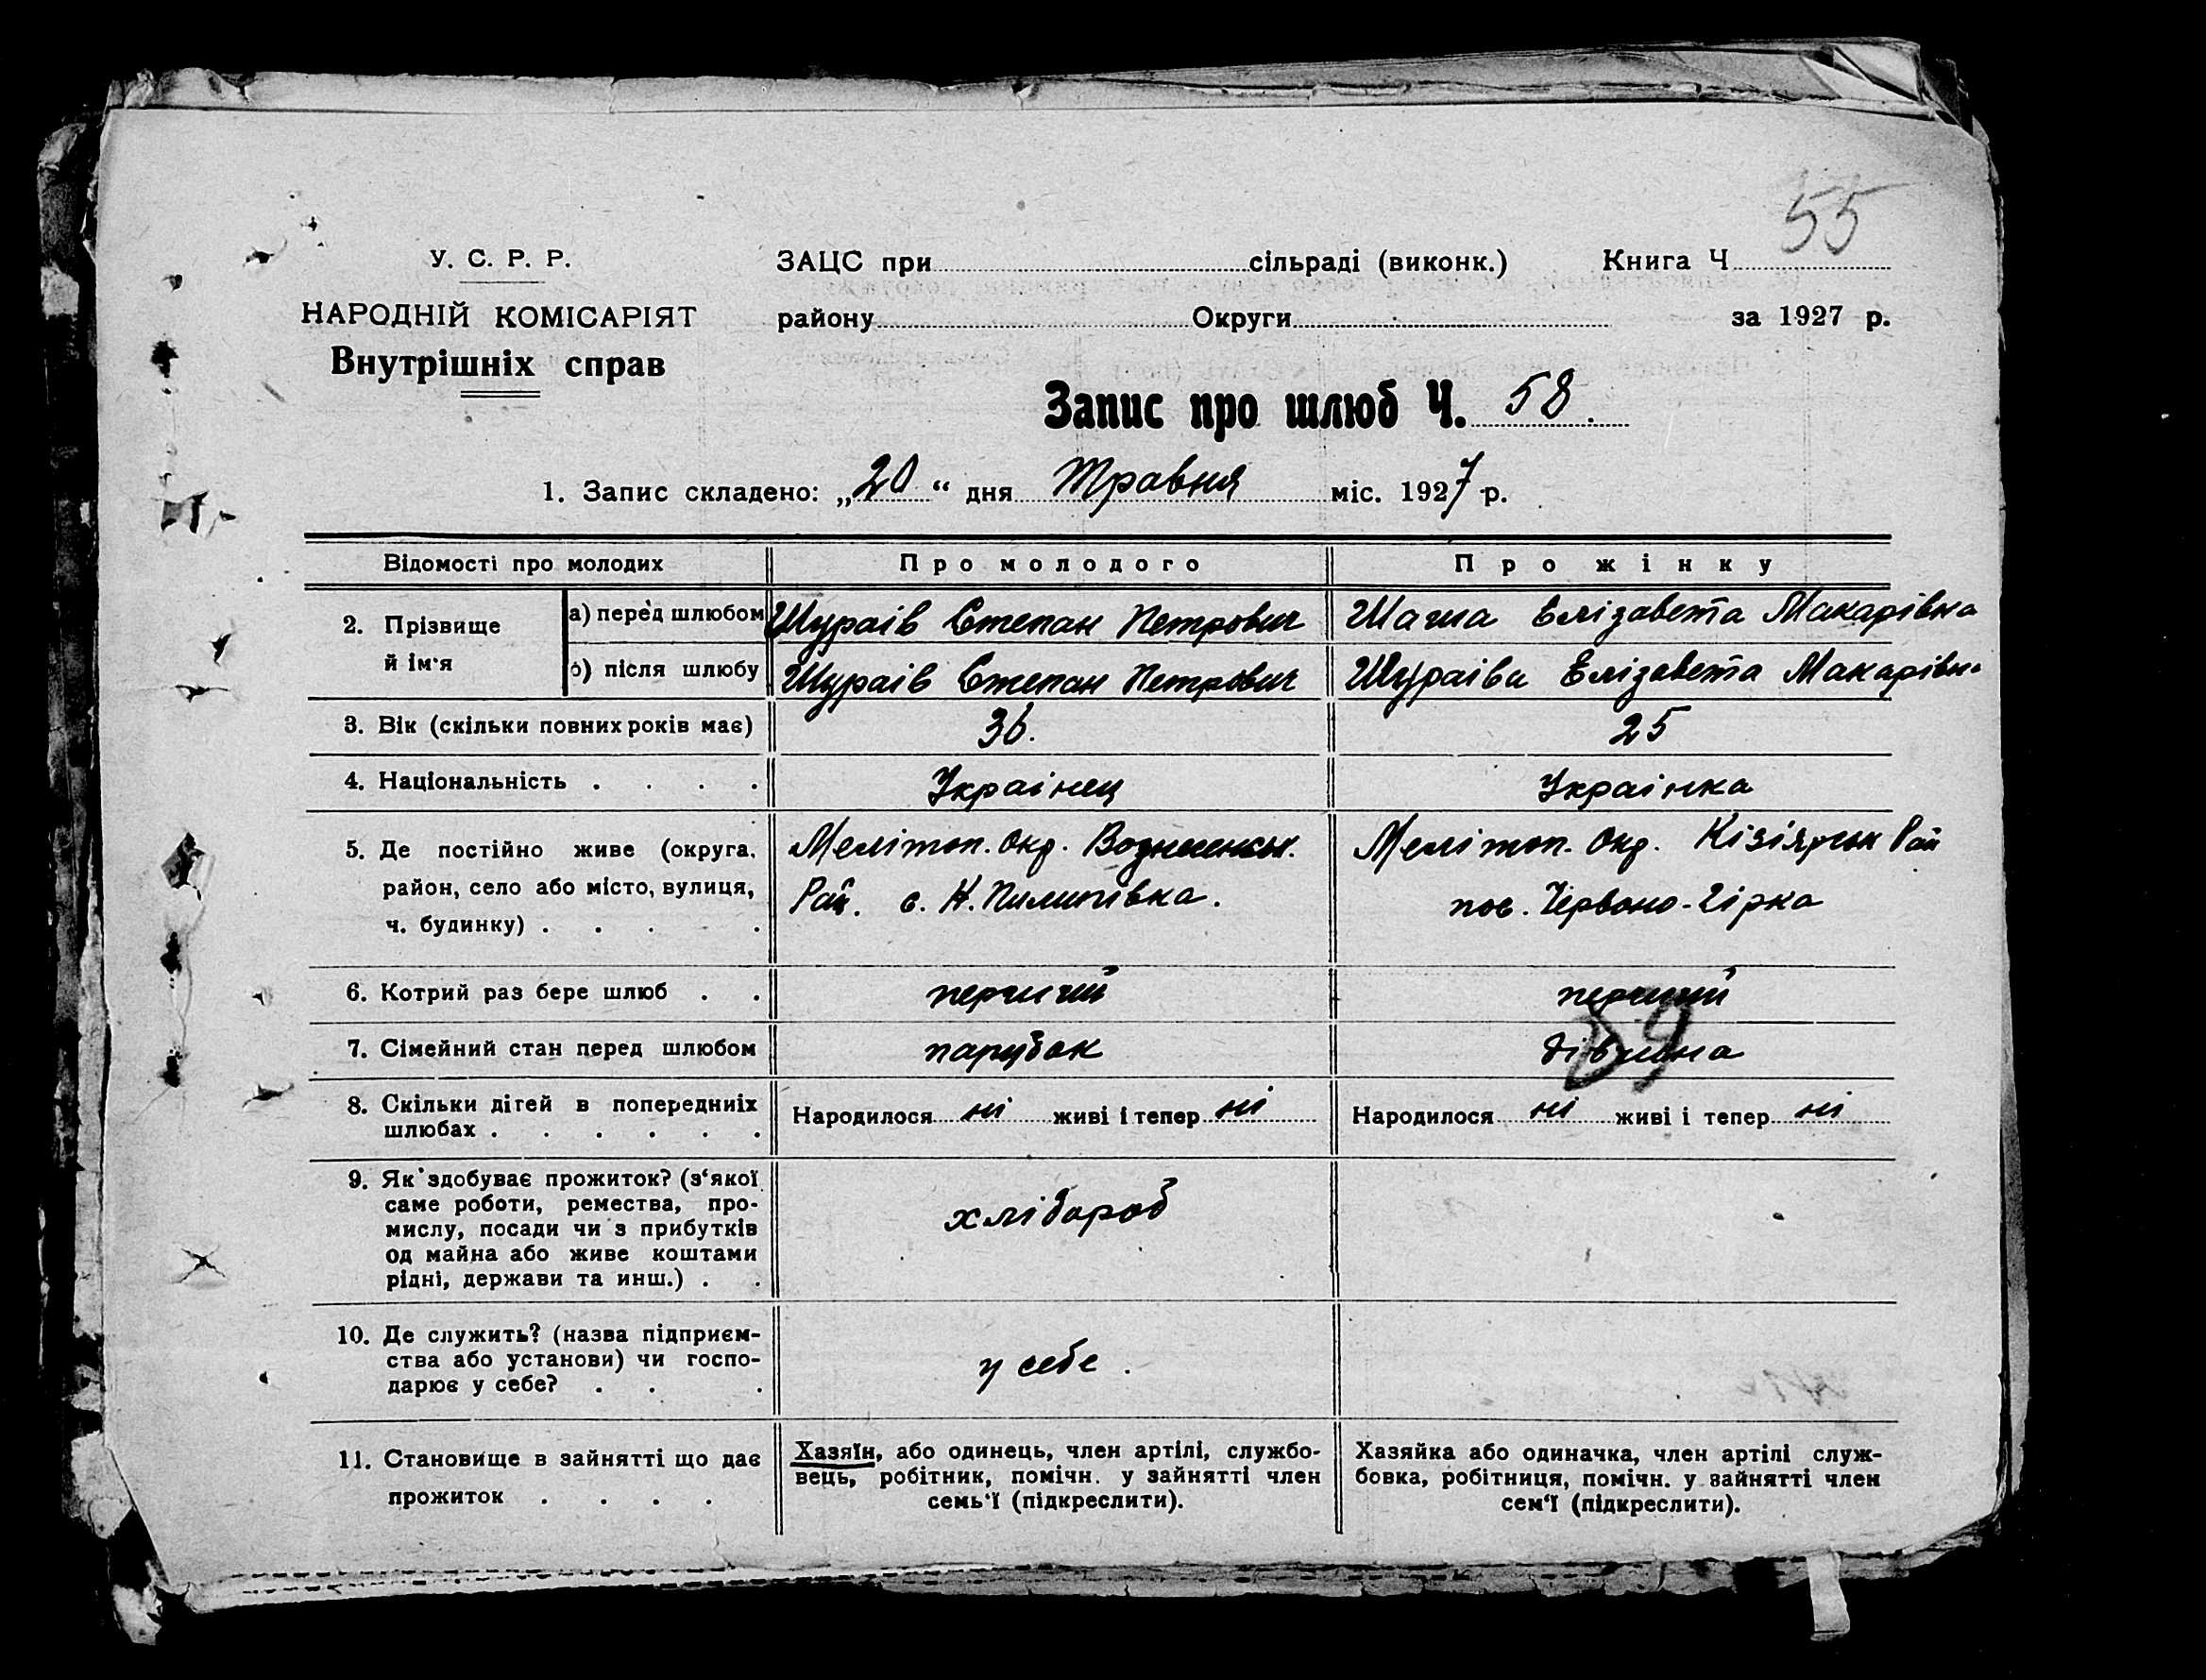 55
У. С. Р. Р.
ЗАЦС при сільраді (виконк.) Книга Ч
НАРОДНІЙ КОМІСАРІЯТ
району Округи за 1927 р.
Внутрішніх справ
Запис про шлюб Ч. 58.
1. Запис складено: „20“ дня Травня міс. 1927 р.
Відомості про молодих
Про молодого
Про жінку
2. Прізвище й ім'я
а) перед шлюбом
Шураів Степан Петрович
Елізавета Макарівна
б) після шлюбу
Шураів Степан Петрович
Шураіва Елізавета
3. Вік (скільки повних років має)
36.
25
4. Національність . . . .
Украінец
Украінка
5. Де постійно живе (округа,
район, село або місто, вулиця,
ч. будинку) . . . .
Меліт‌оп. Окр.
Рай. с. Н. Пилипівка.
Мелітоп. Окр. Рай
пос. Червоно-Гірка
6. Котрий раз бере шлюб . .
перший
перший
7. Сімейний стан перед шлюбом
парубок
дівчина
59
8. Скільки дітей в попередниіх
шлюбах . . . . . .
Народилося ні живі і тепер ні
Народилося ні живі і тепер ні
9. Як здобуває прожиток? (з‘якої
саме роботи, ремества, про-
мислу, посади чи з прибутків
од майна або живе коштами
рідні, держави та инш.) . .
хлібороб
10. Де служить? (назва підприєм-
ства або установи) чи госпо-
дарює у себе? . . .
у себе.
11. Становище в зайнятті що дає
прожиток . . . .
Хазяїн, або одинець, член артілі, службо-
вець, робітник, помічн. у зайнятті член
семь‘ї (підкреслити).
Хазяйка або одиначка, член артілі служ-
бовка, робітниця, помічн. у зайнятті член
сем‘ї (підкреслити).